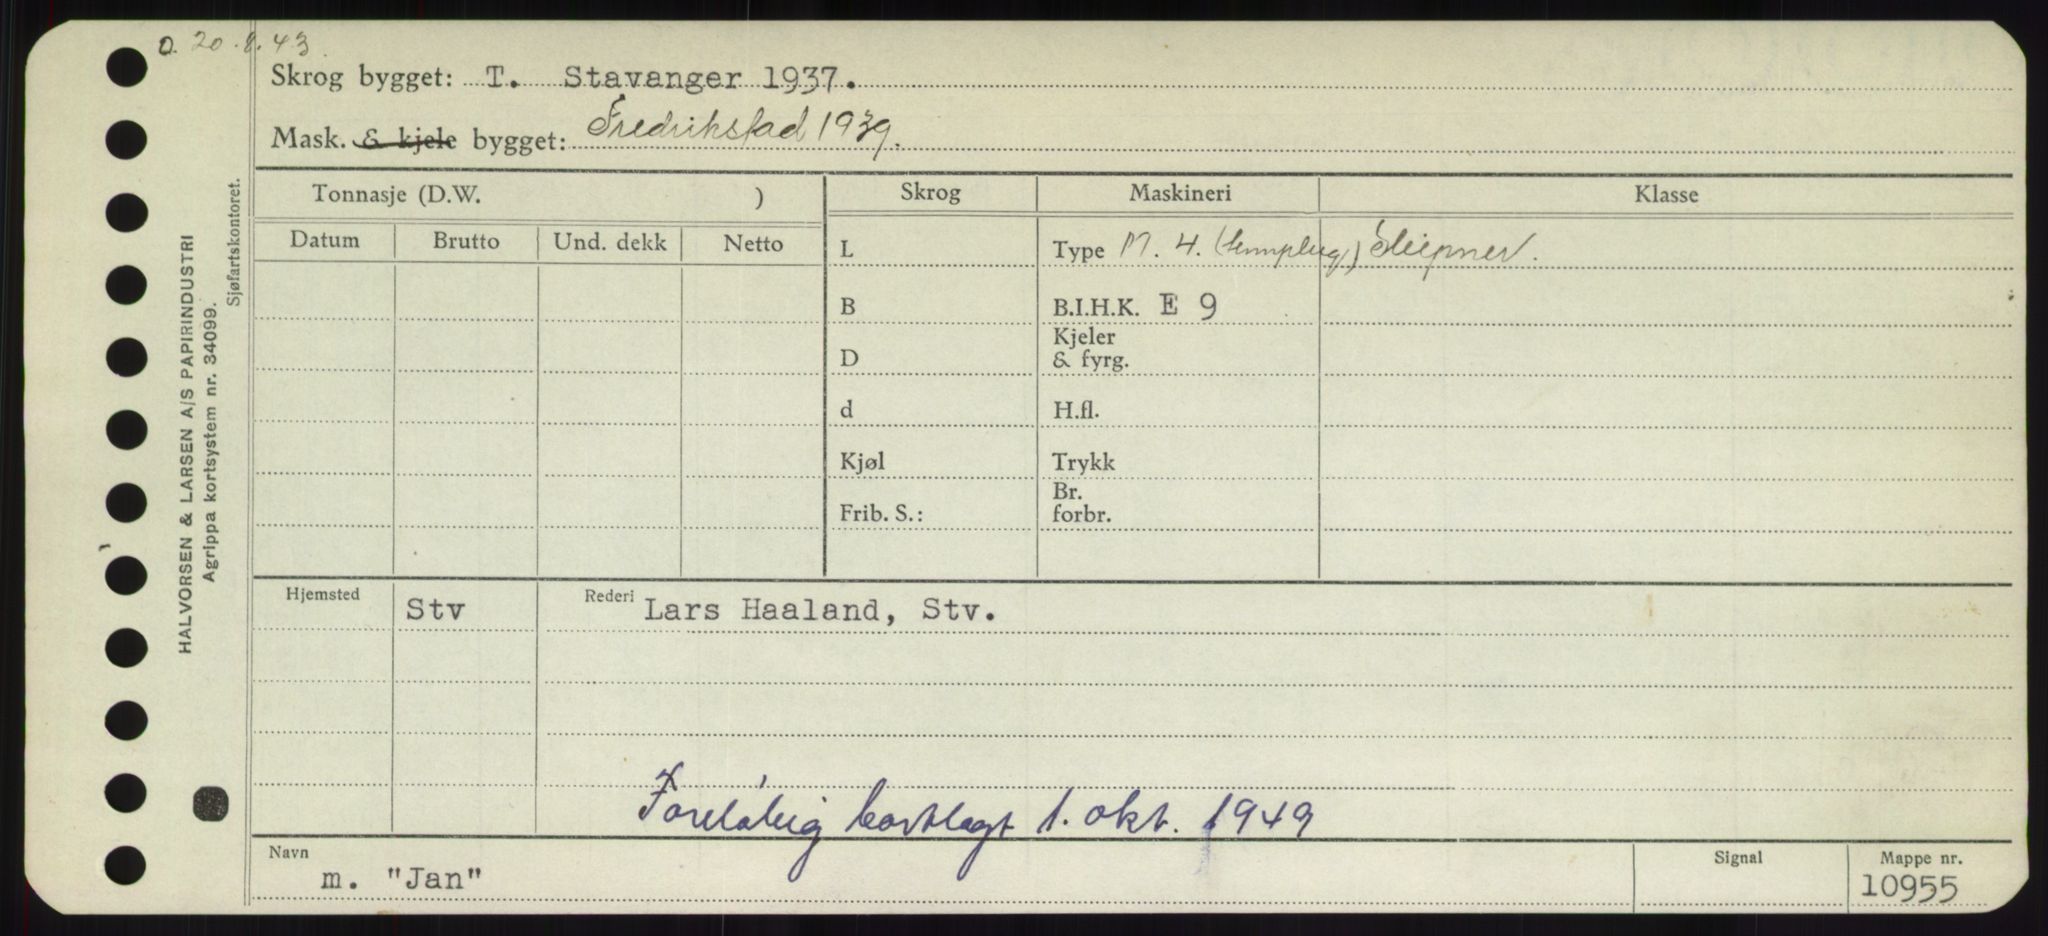 O. 20.8.43.
Skrog bygget: T. Stavanger 1937.
Mask. & kjele bygget: Fredrikstad 1939.
HALVORSEN & LARSEN A/S PAPIRINDUSTRI
Agrippa kortsystem nr. 34099.
Sjøfartskontoret.
Tonnasje (D.W. ) Skrog Maskineri Klasse
Datum Brutto Und. dekk Netto
L Type M. 4. Sleipner.
B B.I.H.K. E 9
D Kjeler & fyrg.
d H.fl.
Kjøl Trykk
Frib. S.: Br. forbr.
Hjemsted Stv Rederi Lars Haaland, Stv.
Foreløbig bortlagt 1. okt. 1949
Navn Signal Mappe nr.
m. "Jan" 10955